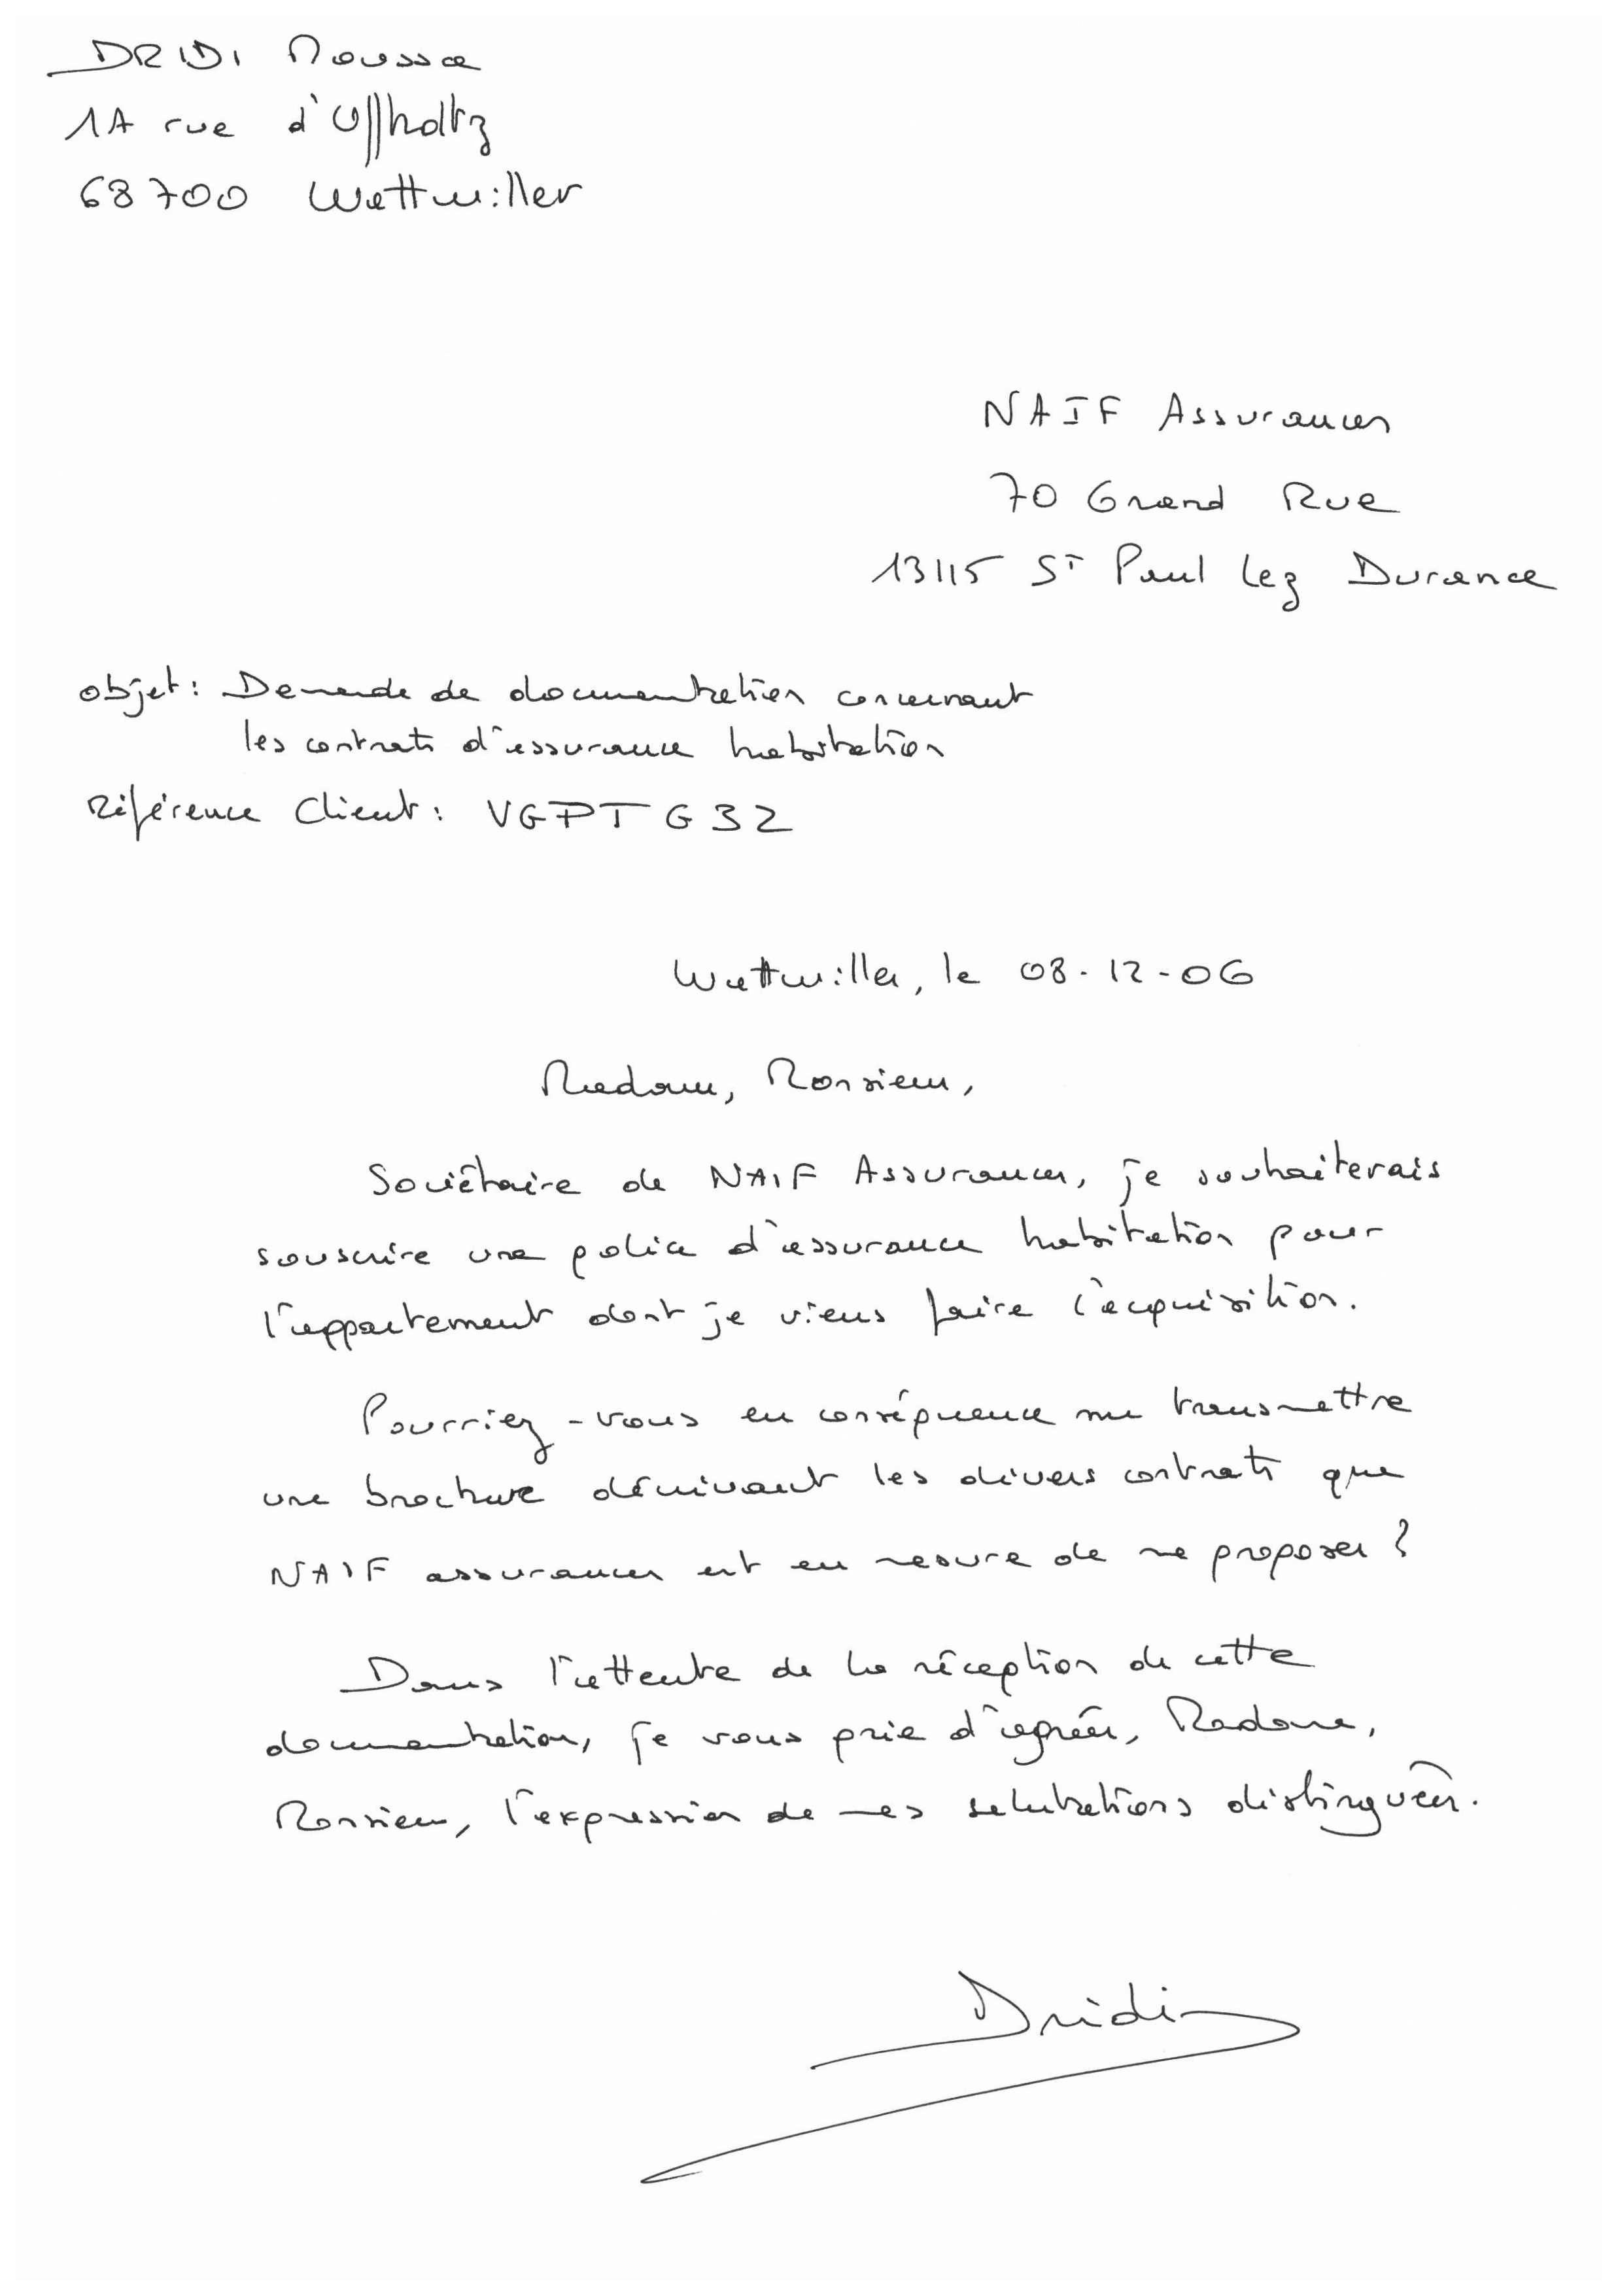 DRIDI Moussa
1A rue d'Uffholtz
68700 Wattwiller
NAIF Assurances
70 Grand Rue
13115 St Paul lez Durance
objet : Demande de documentation concernant
les contrats d'assurance habitation
Référence Client : VGPTG32
Wattwiller, le 08-12-06
Madame, Monsieur,
Sociétaire de NAIF Assurances, je souhaiterais
souscrire une police d'assurance habitation pour
l'appartement dont je viens faire l'acquisition.
Pourriez-vous en conséquence me transmettre
une brochure décrivant les divers contrats que
NAIF assurances est en mesure de me proposer ?
Dans l'attente de la réception de cette
documentation, je vous prie d'agréer, Madame,
Monsieur, l'expression de mes salutations distinguées.
Dridi